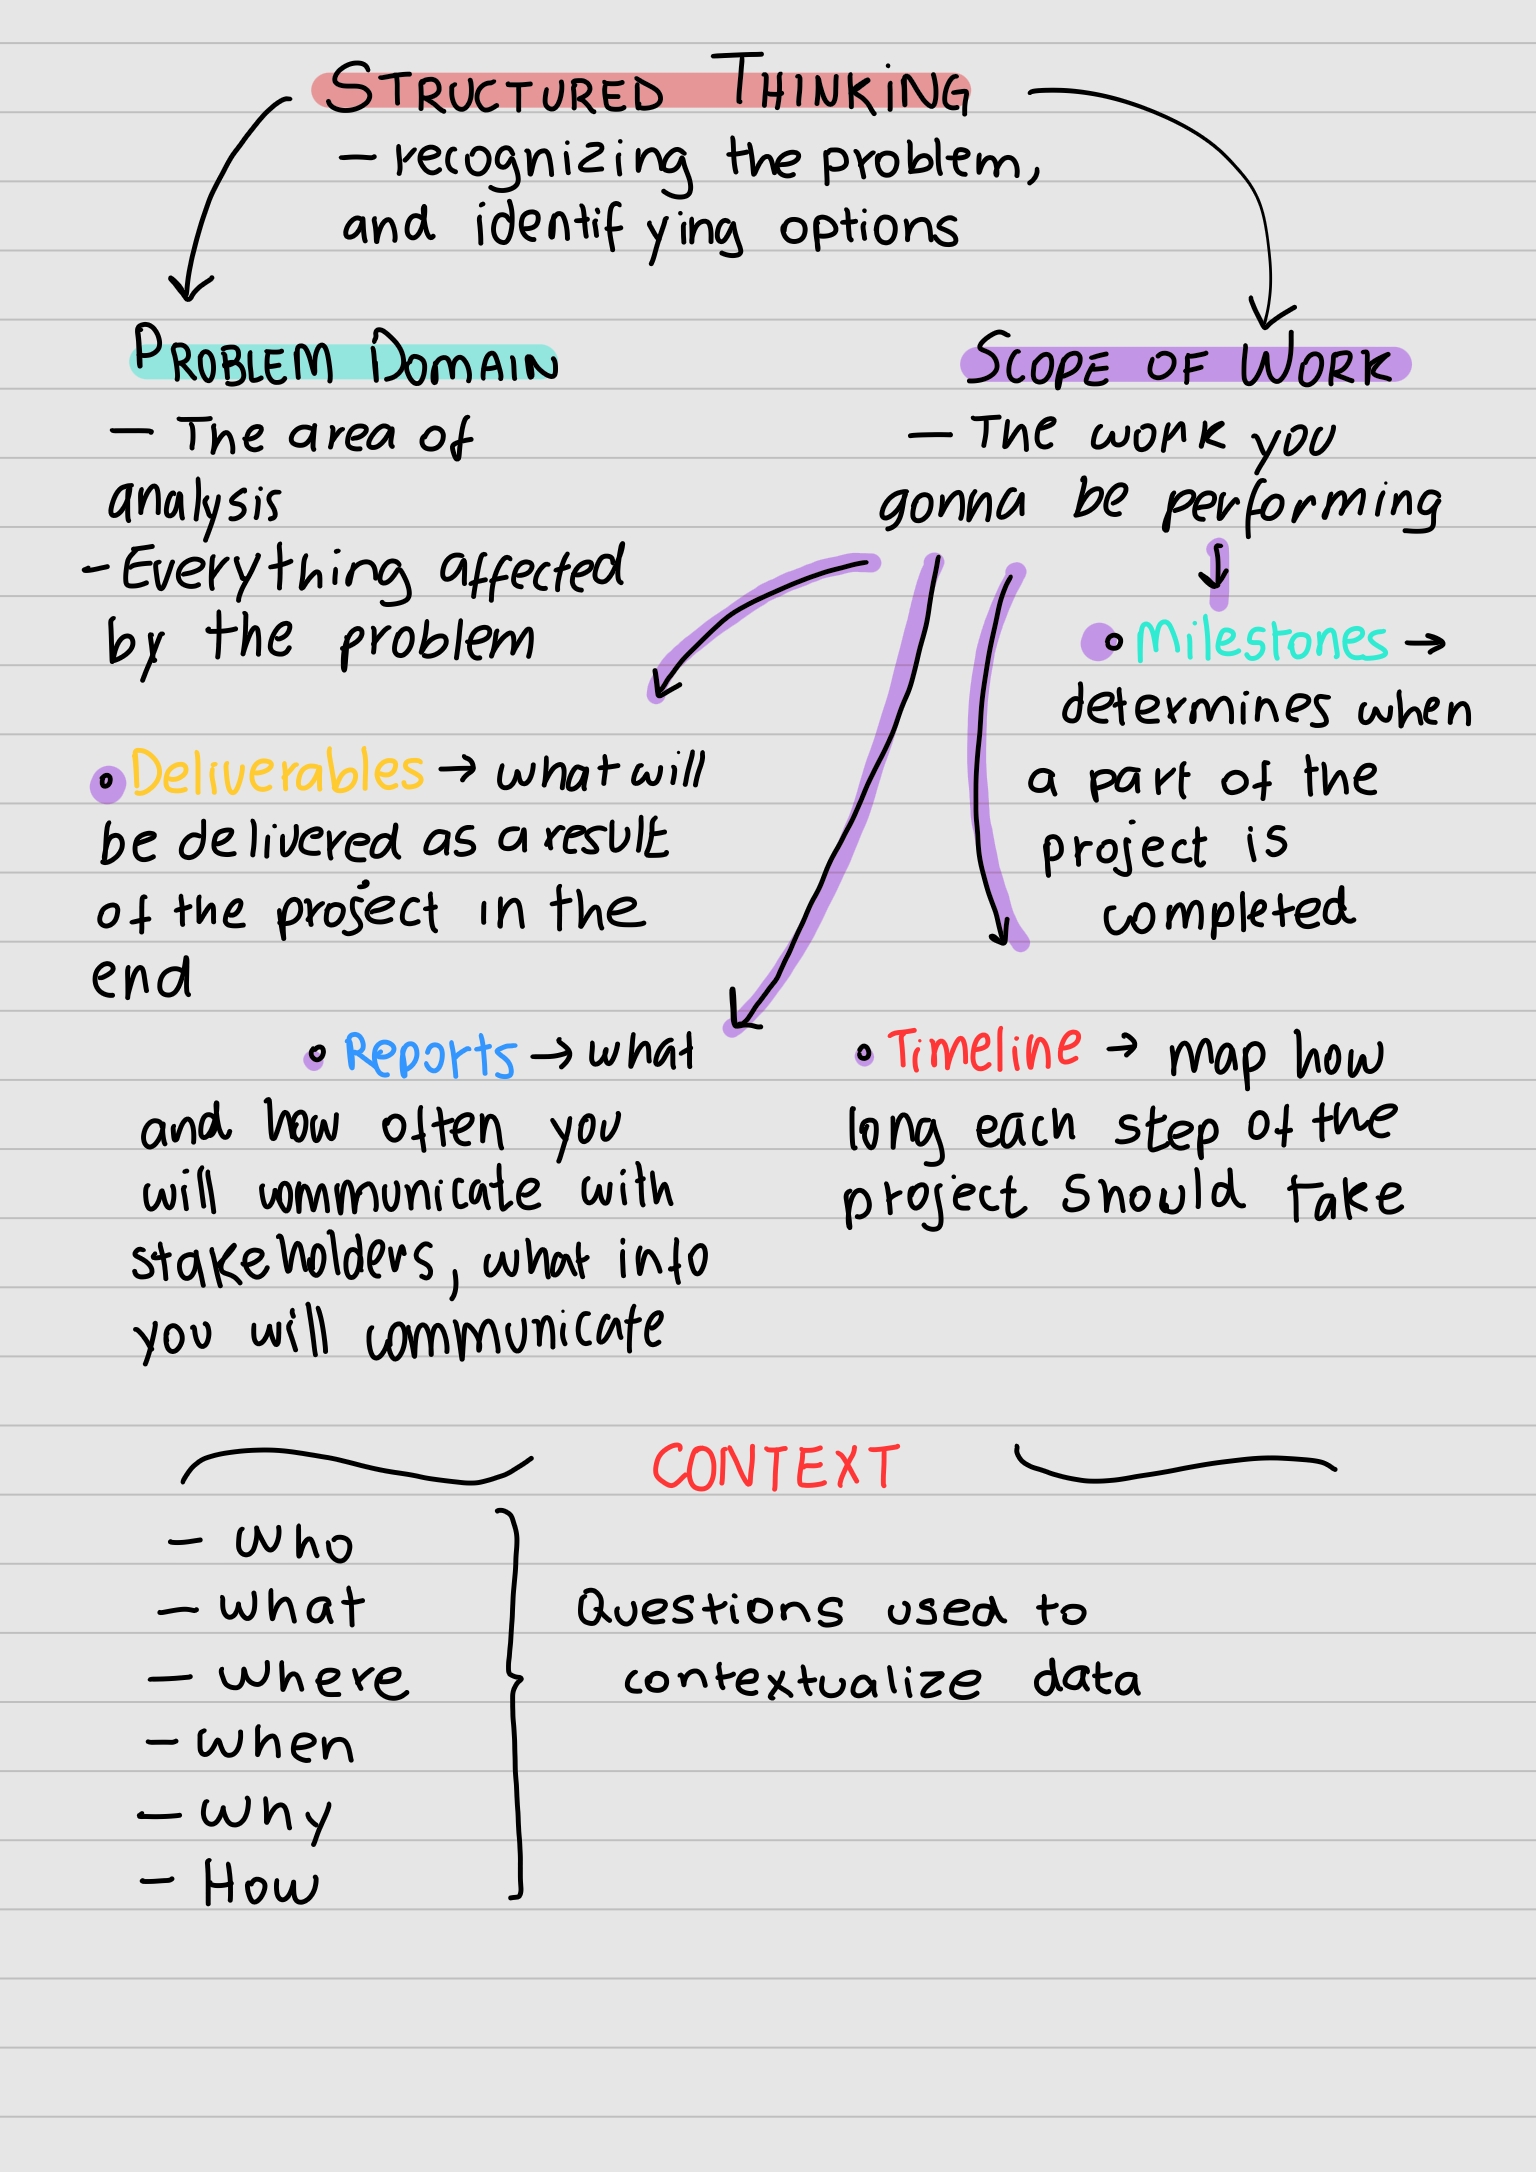 STRUCTURED THINKING
— recognizing the problem,
and identifying options
PROBLEM DOMAIN
— The area of
analysis
- Everything affected
by the problem
SCOPE OF WORK
— The work you
gonna be performing
• Milestones →
determines when
a part of the
project is
completed
• Deliverables → what will
be delivered as a result
of the project in the
end
• Reports → what
and how often you
will communicate with
stakeholders, what info
you will communicate
• Timeline → map how
long each step of the
project should take
CONTEXT
— who
— what
— where
— when
— why
— How
Questions used to
contextualize data